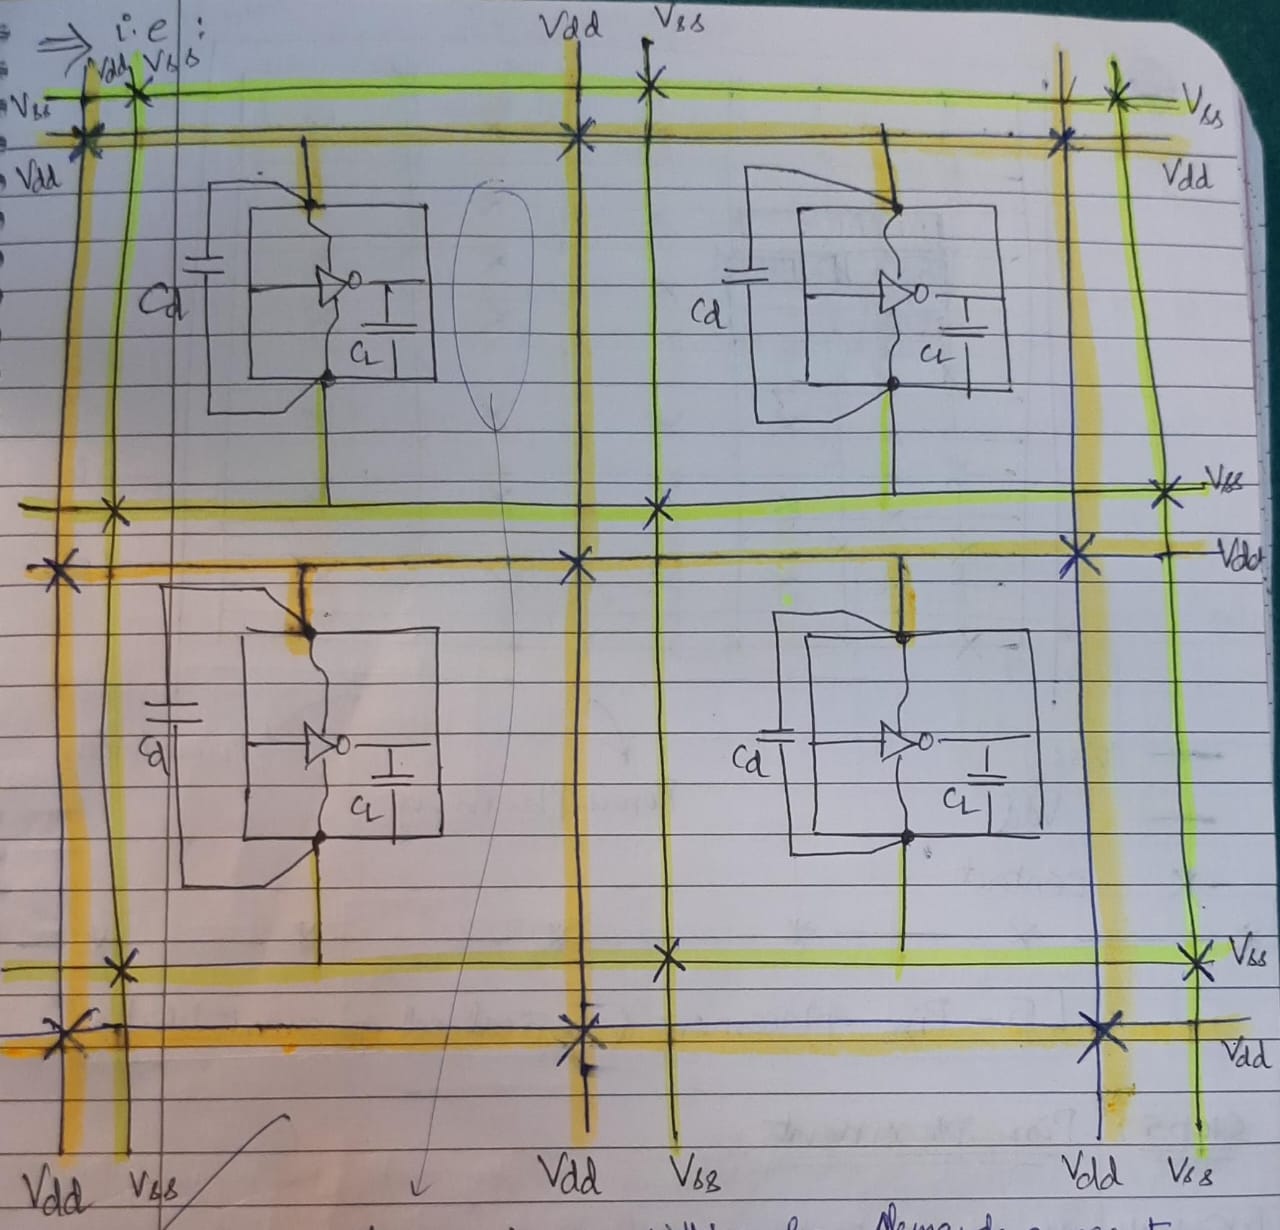 ⇒ i.e :
Vdd Vss
Vdd Vss
Vss
Vss
Vdd
Vdd
Cd
CL
Cd
CL
Vss
Vdd
Cd
CL
Cd
CL
Vss
Vdd
Vdd Vss
Vdd Vss
Vdd Vss